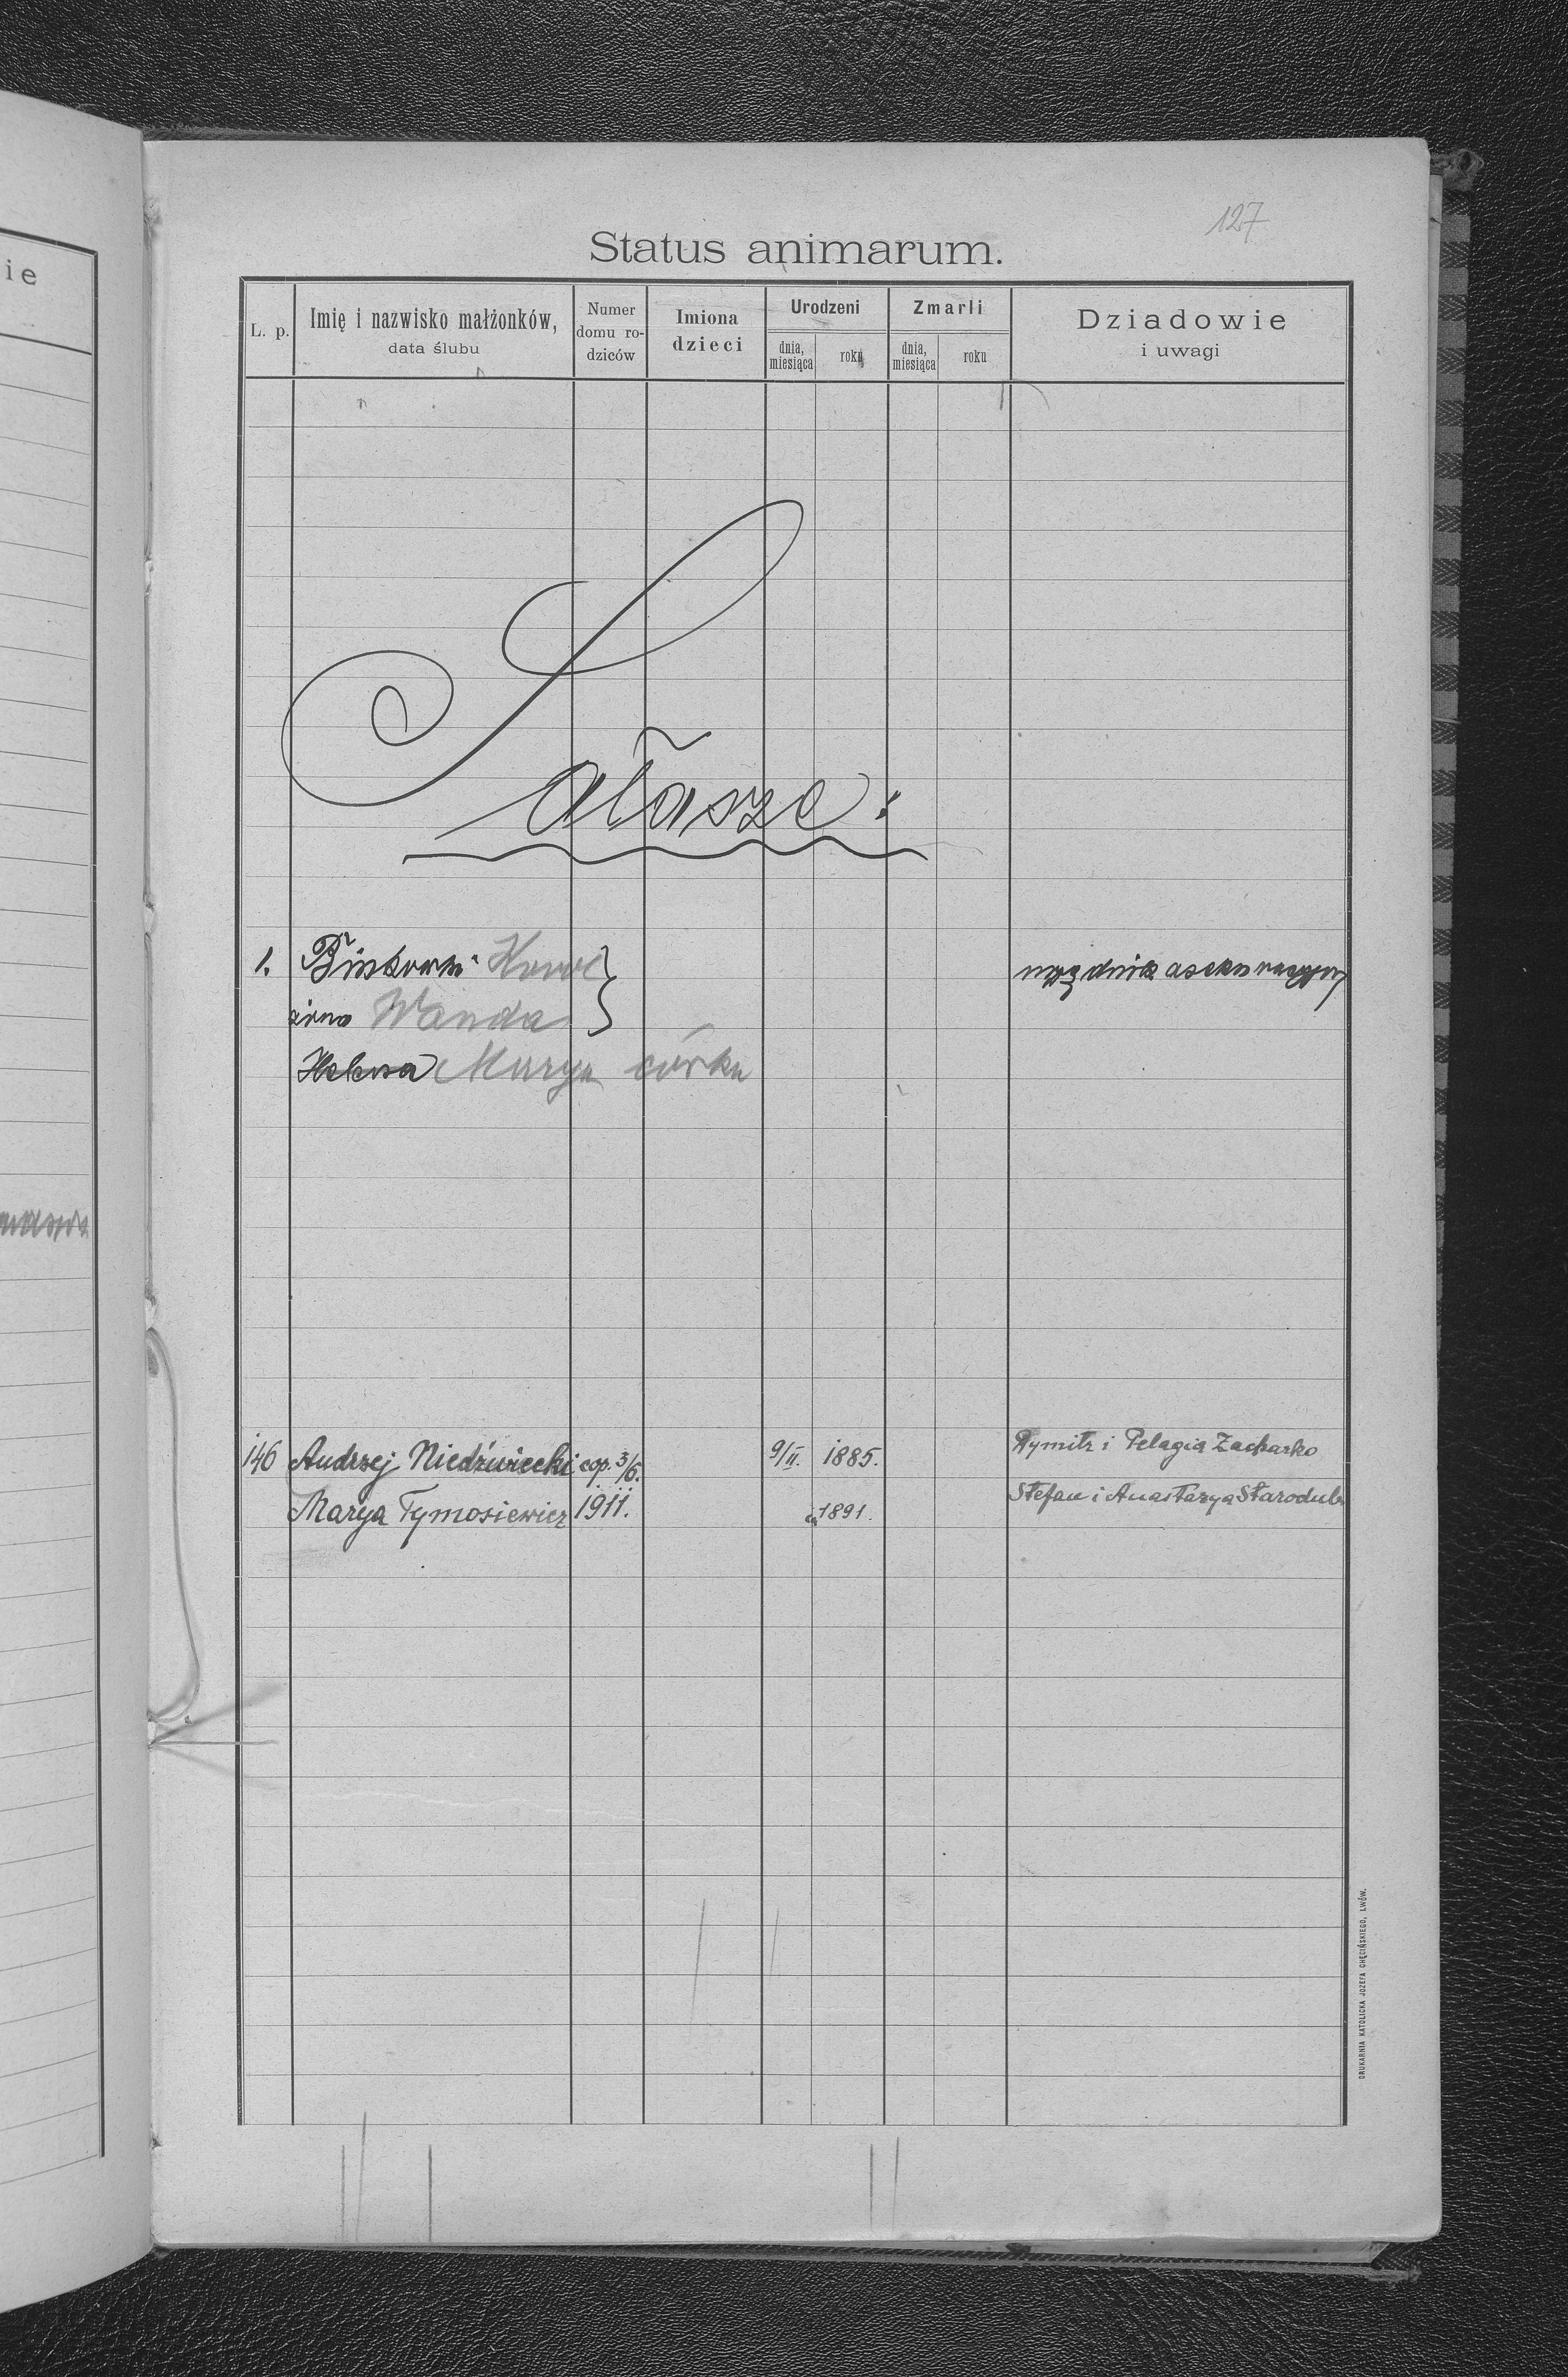 ie
127
Status animarum.
L. p.
Imię i nazwisko małżonków,
data ślubu
Numer
domu ro-
dziców
Imiona
dzieci
Urodzeni
dnia,
miesiąca
roku
Zmarli
dnia,
miesiąca
roku
Dziadowie
i uwagi
Sałasze:
1. Bińkowski Karol urzędnik asekuracyjny
żona Wanda
Helena Marya córka
146 Andrzej Niedźwiecki cop. 3/6. 9/II. 1885. Dymitr i Pelagia Zacharko
Marya Tymosiewicz 1911. 1891. Stefan i Anastazya Starodub
DRUKARNIA KATOLICKA JOZEFA CHĘCIŃSKIEGO, LWÓW.